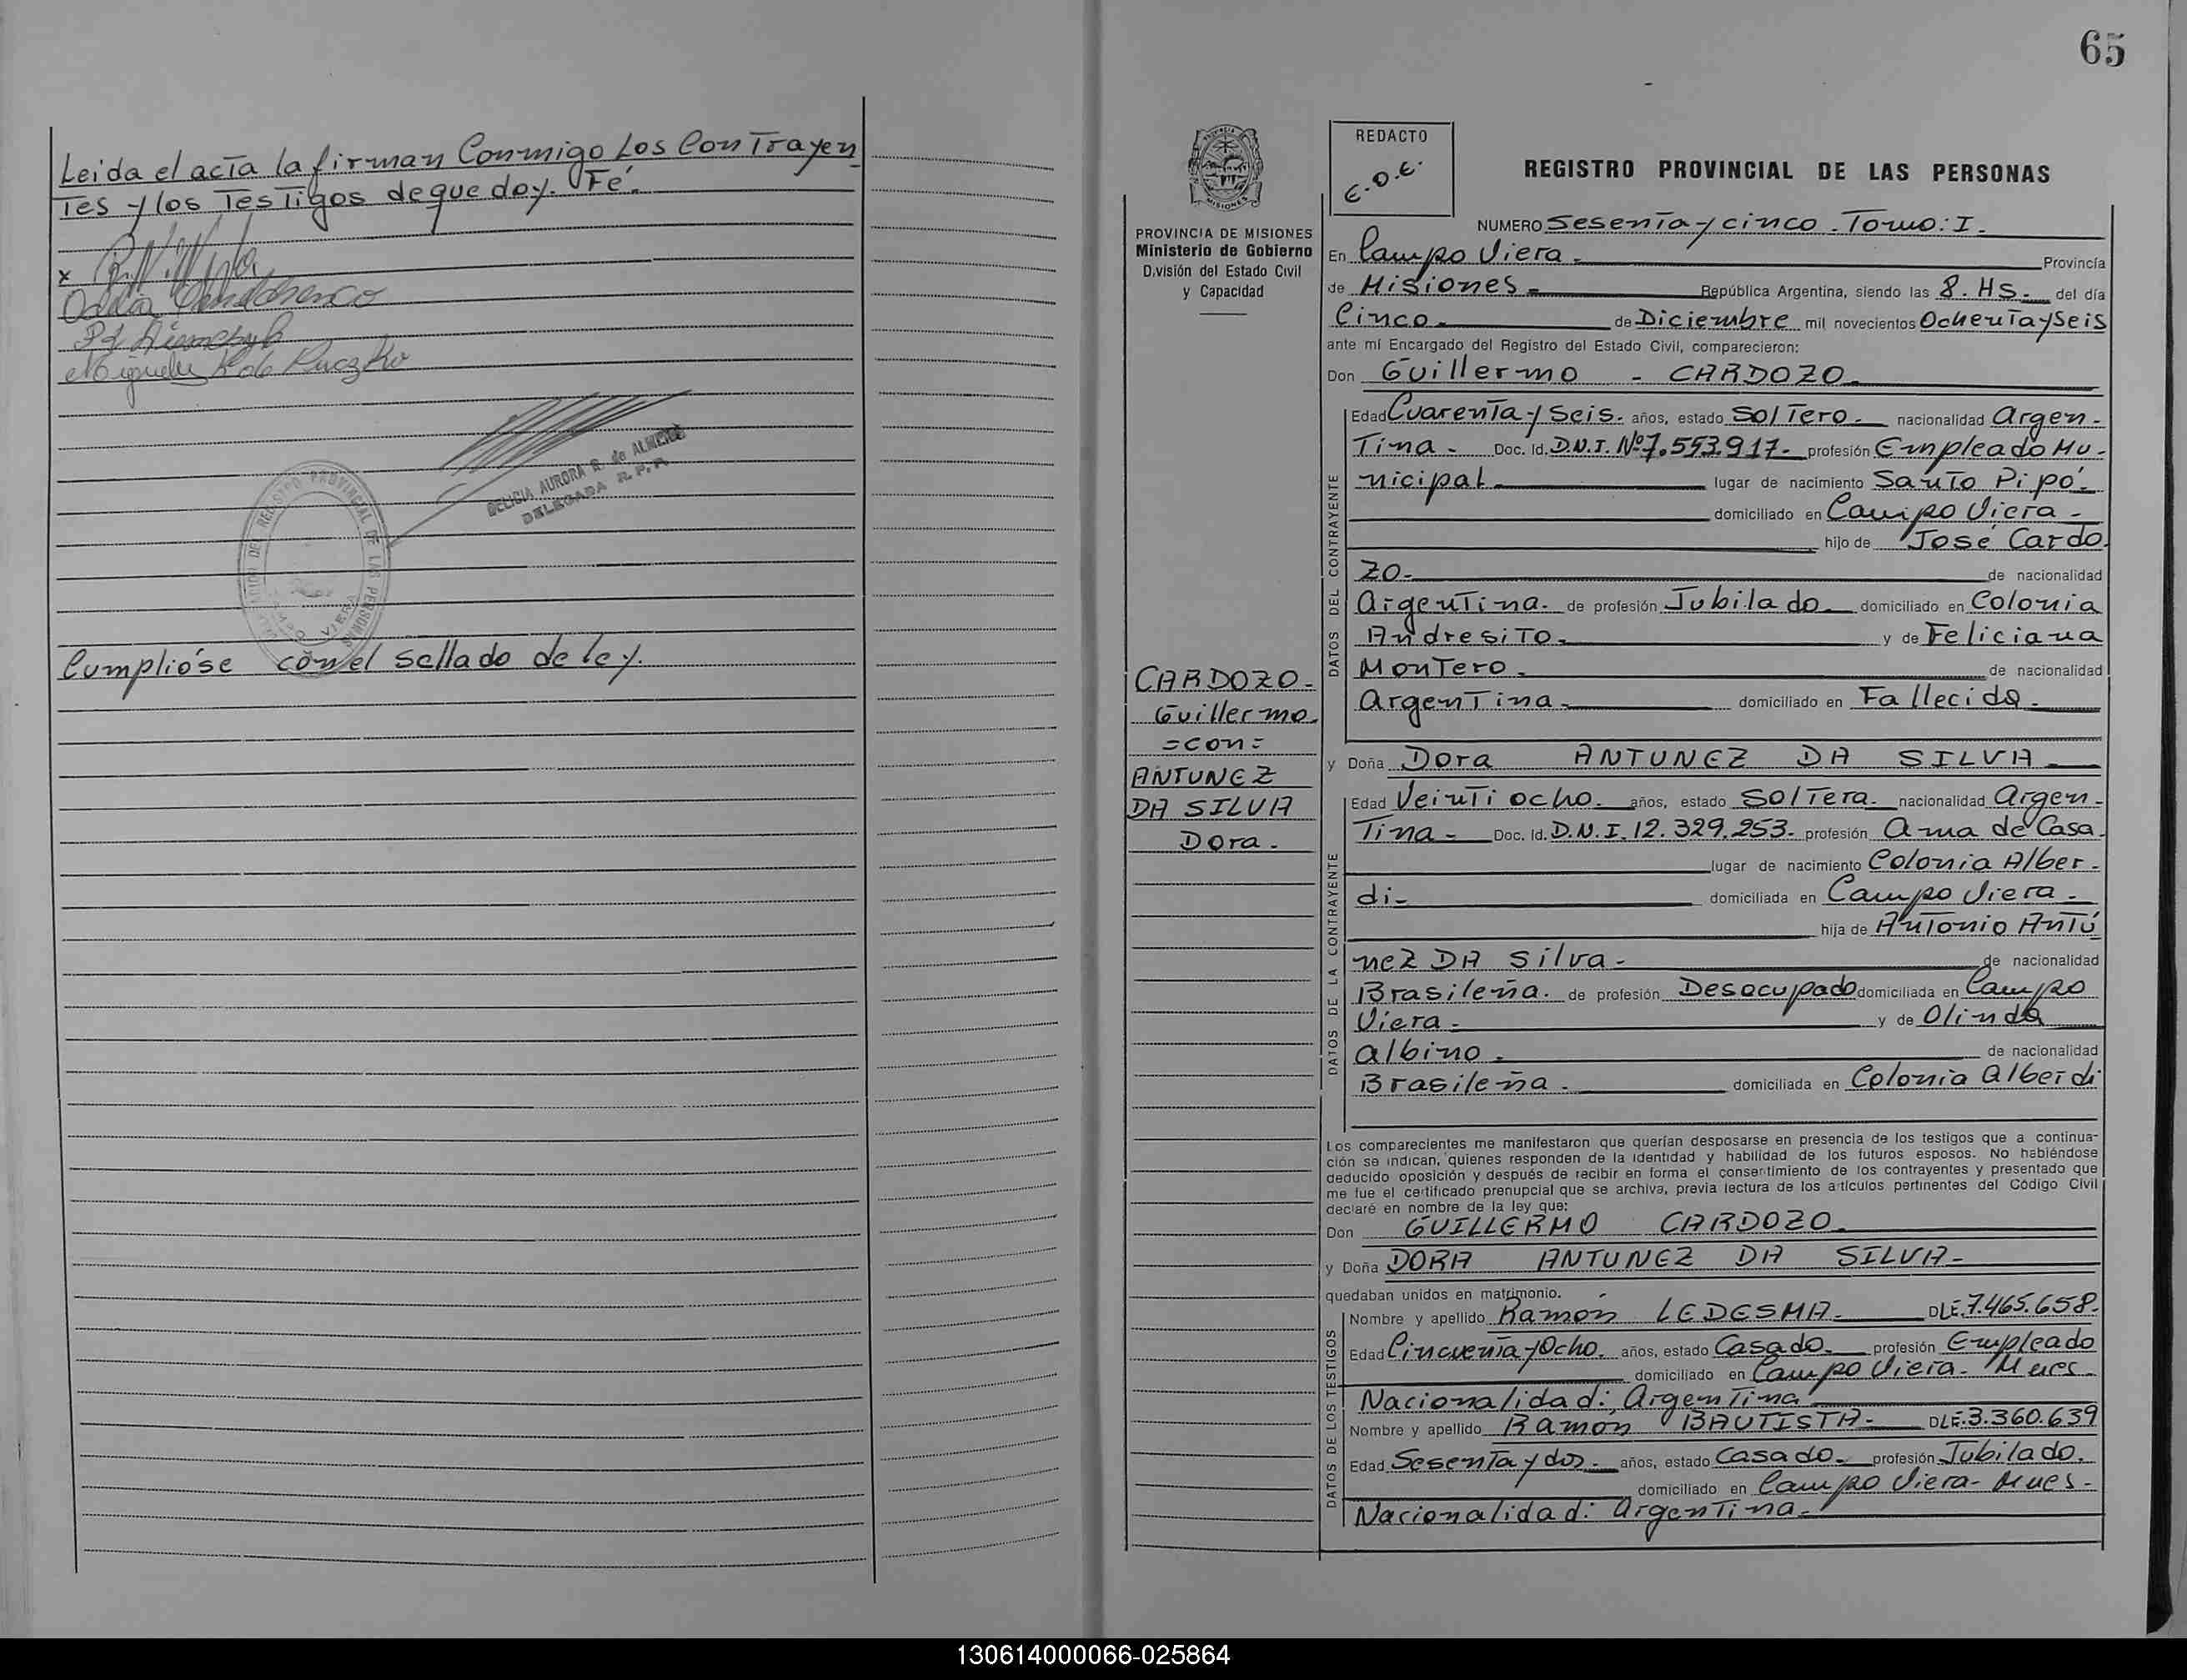 Leida el acta la firman Conmigo Los Contrayen
tes y los Testigos de que doy. Fé.
x
Odila
DELICIA AURORA R. de ALMEIDA
DELEGADA R.P.P.
REGISTRO PROVINCIAL DE LAS PERSONAS
CAMPO VIERA
Cumplióse con el sellado de ley.
65
REDACTO
E.O.E.
REGISTRO PROVINCIAL DE LAS PERSONAS
PROVINCIA DE MISIONES
Ministerio de Gobierno
División del Estado Civil
y Capacidad
NUMERO Sesenta y cinco. Tomo: I.
En Campo Viera. Provincia
de Misiones República Argentina, siendo las 8. HS. del día
Cinco. de Diciembre mil novecientos Ochenta y Seis
ante mí Encargado del Registro del Estado Civil, comparecieron:
Don Guillermo - CARDOZO.
DATOS DEL CONTRAYENTE
Edad Cuarenta y Seis. años, estado Soltero. nacionalidad Argen-
tina. Doc. Id. D.N.I. Nº 7.593.917. profesión Empleado Mu-
nicipal lugar de nacimiento Santo Pipó.
domiciliado en Campo Viera.
hijo de José Cardo
zo. de nacionalidad
Argentina. de profesión Jubilado domiciliado en Colonia
Andresito. y de Feliciana
Montero. de nacionalidad
Argentina. domiciliado en Fallecida.
CARDOZO.
Guillermo.
=con=
ANTUNEZ
DA SILVA
Dora.
y Doña Dora ANTUNEZ DA SILVA
DATOS DE LA CONTRAYENTE
Edad Veinti ocho. años, estado Soltera. nacionalidad Argen-
tina - Doc. Id. D.N.I. 12.329.253. profesión Ama de Casa.
lugar de nacimiento Colonia Alber-
di- domiciliada en Campo Viera.
hija de Antonio Antú
nez DA Silva. de nacionalidad
Brasileña. de profesión Desocupado domiciliada en Campo
Viera. y de Olinda
Albino. de nacionalidad
Brasileña. domiciliada en Colonia Alberdi
Los comparecientes me manifestaron que querían desposarse en presencia de los testigos que a continua-
ción se indican, quienes responden de la identidad y habilidad de los futuros esposos. No habiéndose
deducido oposición y después de recibir en forma el consentimiento de los contrayentes y presentado que
me fue el certificado prenupcial que se archiva, previa lectura de los artículos pertinentes del Código Civil
declaré en nombre de la ley que:
Don GUILLERMO CARDOZO.
y Doña DORA ANTUNEZ DA SILVA-
quedaban unidos en matrimonio.
DATOS DE LOS TESTIGOS
Nombre y apellido Ramón LEDESMA. DLE. 7.465.658.
Edad Cincuenta y Ocho. años, estado Casado. profesión Empleado
domiciliado en Campo Viera. Mnes
Nacionalidad: Argentina
Nombre y apellido Ramón BAUTISTA. DLE. 3.360.639
Edad Sesenta y dos. años, estado Casado. profesión Jubilado.
domiciliado en Campo Viera- Mnes-
Nacionalidad: Argentina.
130614000066-025864